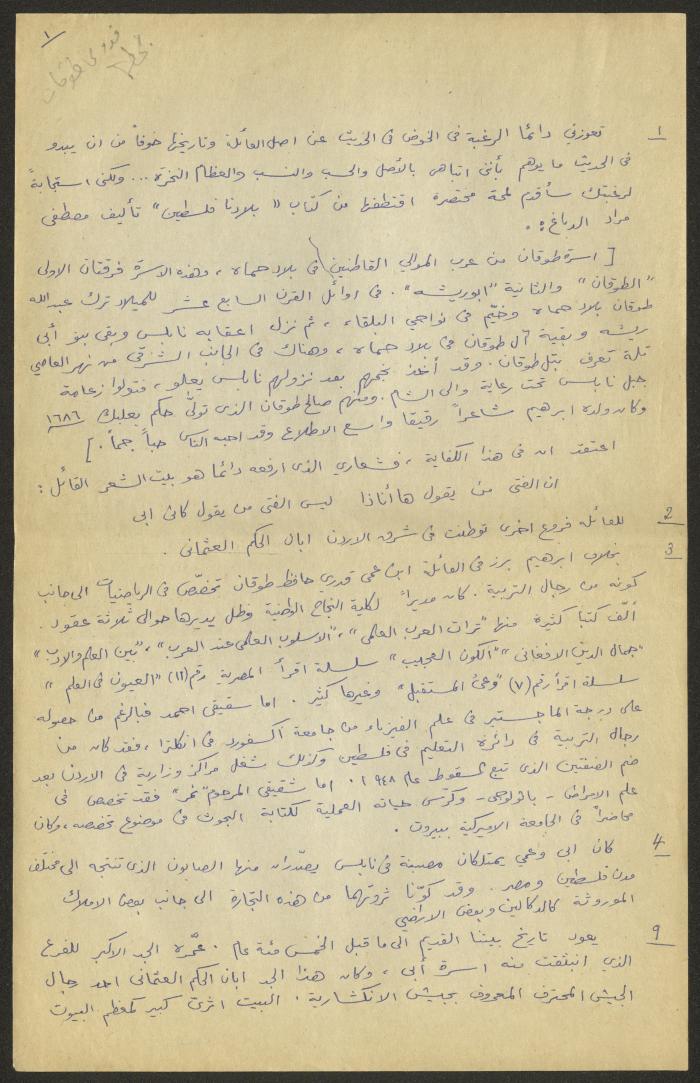 ١
فدوى طوقان
بخطها
١ تعوزني دائمًا الرغبة في الخوض في الحديث عن اصل العائلة وتاريخها خوفًا من ان يبدو
في الحديث ما يوهم بأنني اتباهى بالأصل والحسب والنسب والعظام النخرة... ولكني استجابةً
لرغبتك سأقدم لمحة مختصرة اقتطفها من كتاب "بلادنا فلسطين" تأليف مصطفى
مراد الدباغ :
[ اسرة طوقان من عرب الموالي القاطنين في بلاد حماه ، وهذه الاسرة فرقتان الاولى
"الطوقان" والثانية "ابوريشه". في اوائل القرن السابع عشر للميلاد ترك عبدالله
طوقان بلاد حماه وخيّم في نواحي البلقاء ، ثم نزل اعقابه نابلس وبقي بنو أبي
ريشه وبقية آل طوقان في بلاد حماه ، وهناك في الجانب الشرقي من نهر العاصي
تلة تعرف بتل طوقان. وقد أخذ نجمهم بعد نزولهم نابلس يعلو ، فتولوا زعامة
جبل نابلس تحت رعاية والي الشام. ومنهم صالح طوقان الذي تولّى حكم بعلبك ١٦٨٦
وكان ولده ابرهيم شاعراً رقيقا واسع الاطلاع وقد احبه الناس حباً جماً. ]
اعتقد ان في هذا الكفاية ، فشعاري الذي ارفعه دائما هو بيت الشعر القائل :
ان الفتى من يقول ها أناذا ليس الفتى من يقول كان ابي
٢ للعائلة فروع اخرى توطنت في شرق الاردن ابان الحكم العثماني .
٣ بخلاف ابرهيم برز في العائلة ابن عمي قدري حافظ طوقان تخصّص في الرياضيات الى جانب
كونه من رجال التربية. كان مديراً لكلية النجاح الوطنية وظل يديرها حوالي ثلاثة عقود .
ألّف كتباً كثيرة منها "تراث العرب العلمي" ، "الاسلوب العلمي عند العرب" ، "بين العلم والادب"
"جمال الدين الافغاني" "الكون العجيب" سلسلة اقرأ المصرية رقم (١١) "العيون في العلم"
سلسلة اقرأ رقم (٧) "وعي المستقبل" وغيرها كثير . اما شقيقي احمد فبالرغم من حصوله
على درجة الماجستير في علم الفيزياء من جامعة أكسفورد في انكلترا ، فقد كان من
رجال التربية في دائرة التعليم في فلسطين وكذلك شغل مراكز وزارية في الاردن بعد
ضم الضفتين الذي تبع لسقوط عام ١٩٤٨. اما شقيقي المرحوم "نمر" فقد تخصص في
علم الامراض - باثولوجي - وكرّس حياته العملية لكتابة البحوث في موضوع تخصصه ، وكان
محاضراً في الجامعة الاميركية ببيروت .
٤ كان ابي وعمي يمتلكان مصبنة في نابلس يصدّران منها الصابون الذي تنتجه الى مختلف
مدن فلسطين ومصر . وقد كوّنا ثروتهما من هذه التجارة الى جانب بعض الاملاك
الموروثة كالدكاكين وبعض الاراضي
٩ يعود تاريخ بيتنا القديم الى ما قبل الخمس مئة عام . عمّره الجد الاكبر للفرع
الذي انبثقت منه اسرة أبي ، وكان هذا الجد ابان الحكم العثماني احد رجال
الجيش المحترف المعروف بجيش الانكشارية . البيت اثري كبير كمعظم البيوت